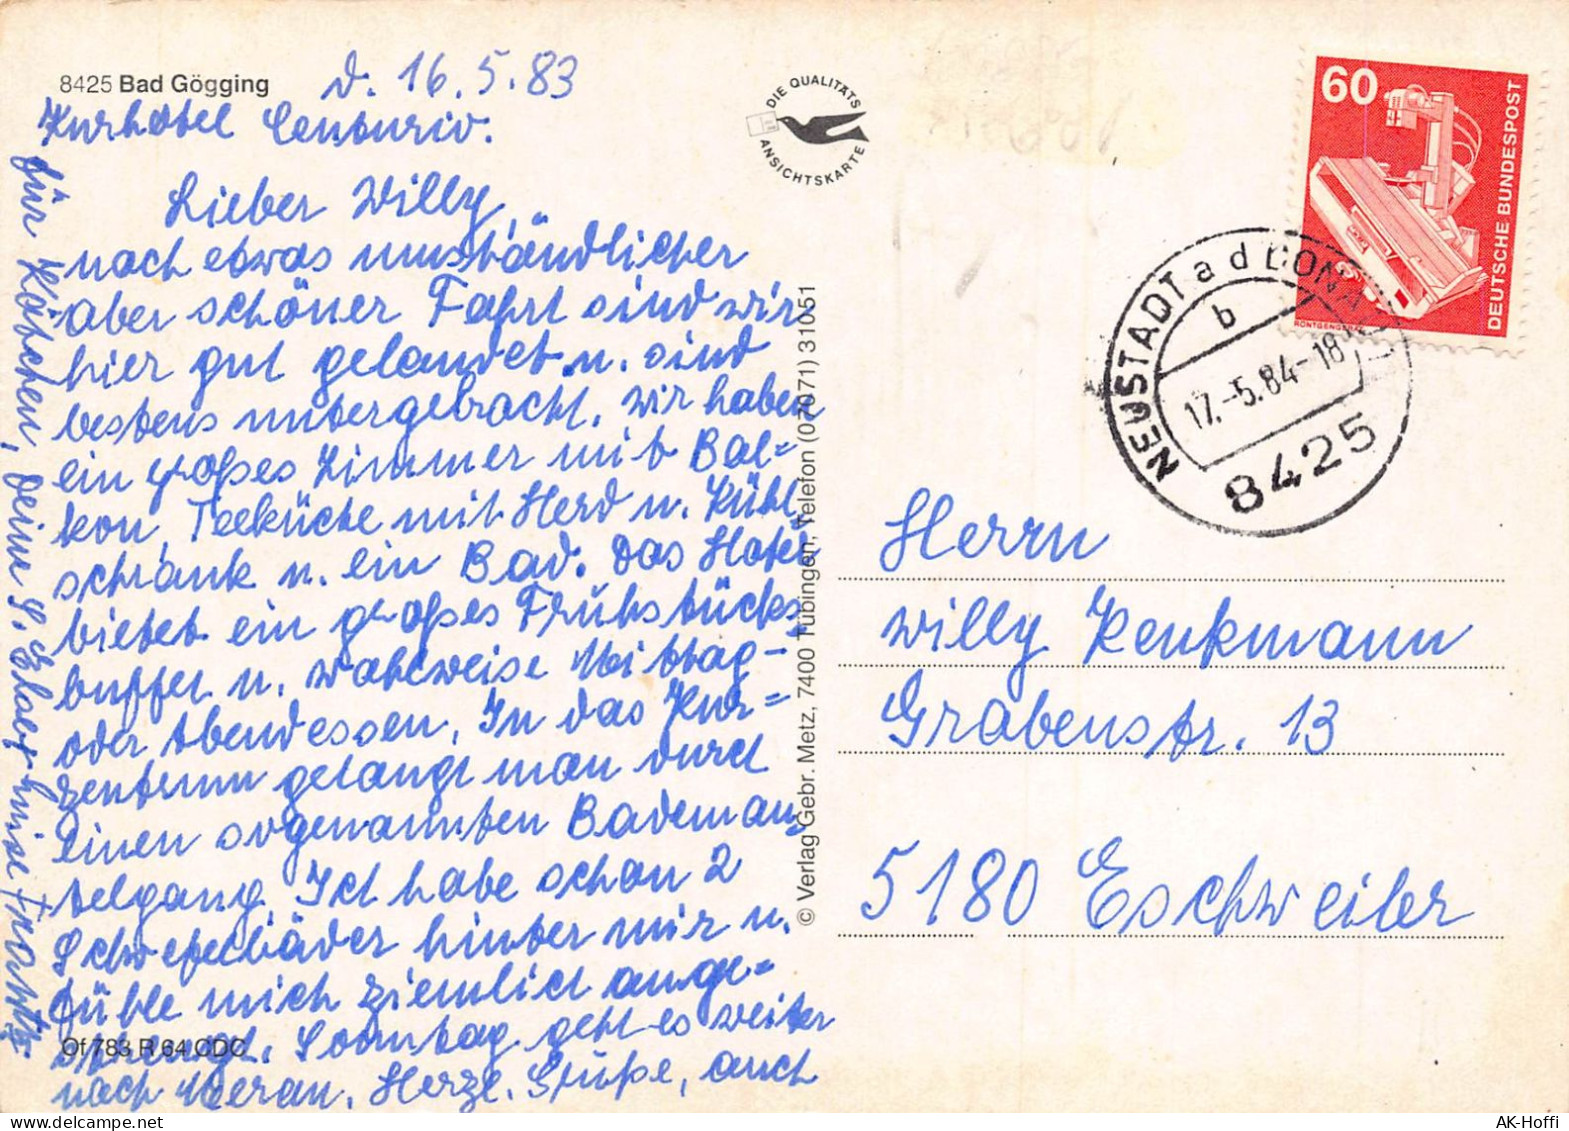 8425 Bad Gögging
d. 16.5.83
Kurhotel Centurio.
Lieber Willy,
nach etwas umständlicher
aber schöner Fahrt sind wir
hier gut gelandet u. sind
bestens untergebracht. Wir haben
ein großes Zimmer mit Bal=
kon, Teeküche mit Herd u. Kühl
schrank u. ein Bad. Das Hotel
bietet ein großes Frühstücks
buffet u. wahlweise Mittag-
oder Abendessen. In das Kur=
zentrum gelangt man durch
einen sogenanntenAdeman
telgang. Ich habe schon 2
Schwefelbäder hinter mir u.
fühle mich ziemlich ange=
strengt. Sonntag geht es weiter
nach Meran. Herzl. Grüße, auch
für Kätchen, Deine
Of 783 R 64 CDC
DIE QUALITÄTS
ANSICHTSKARTE
© Verlag Gebr. Metz, 7400 Tübingen, Telefon (07071) 31051
60
DEUTSCHE BUNDESPOST
NEUSTADT a d DONAU
b
17.-5.84-18
8425
Herrn
Willy Kenkmann
Grabenstr. 13
5180 Eschweiler
AK-Hoffi